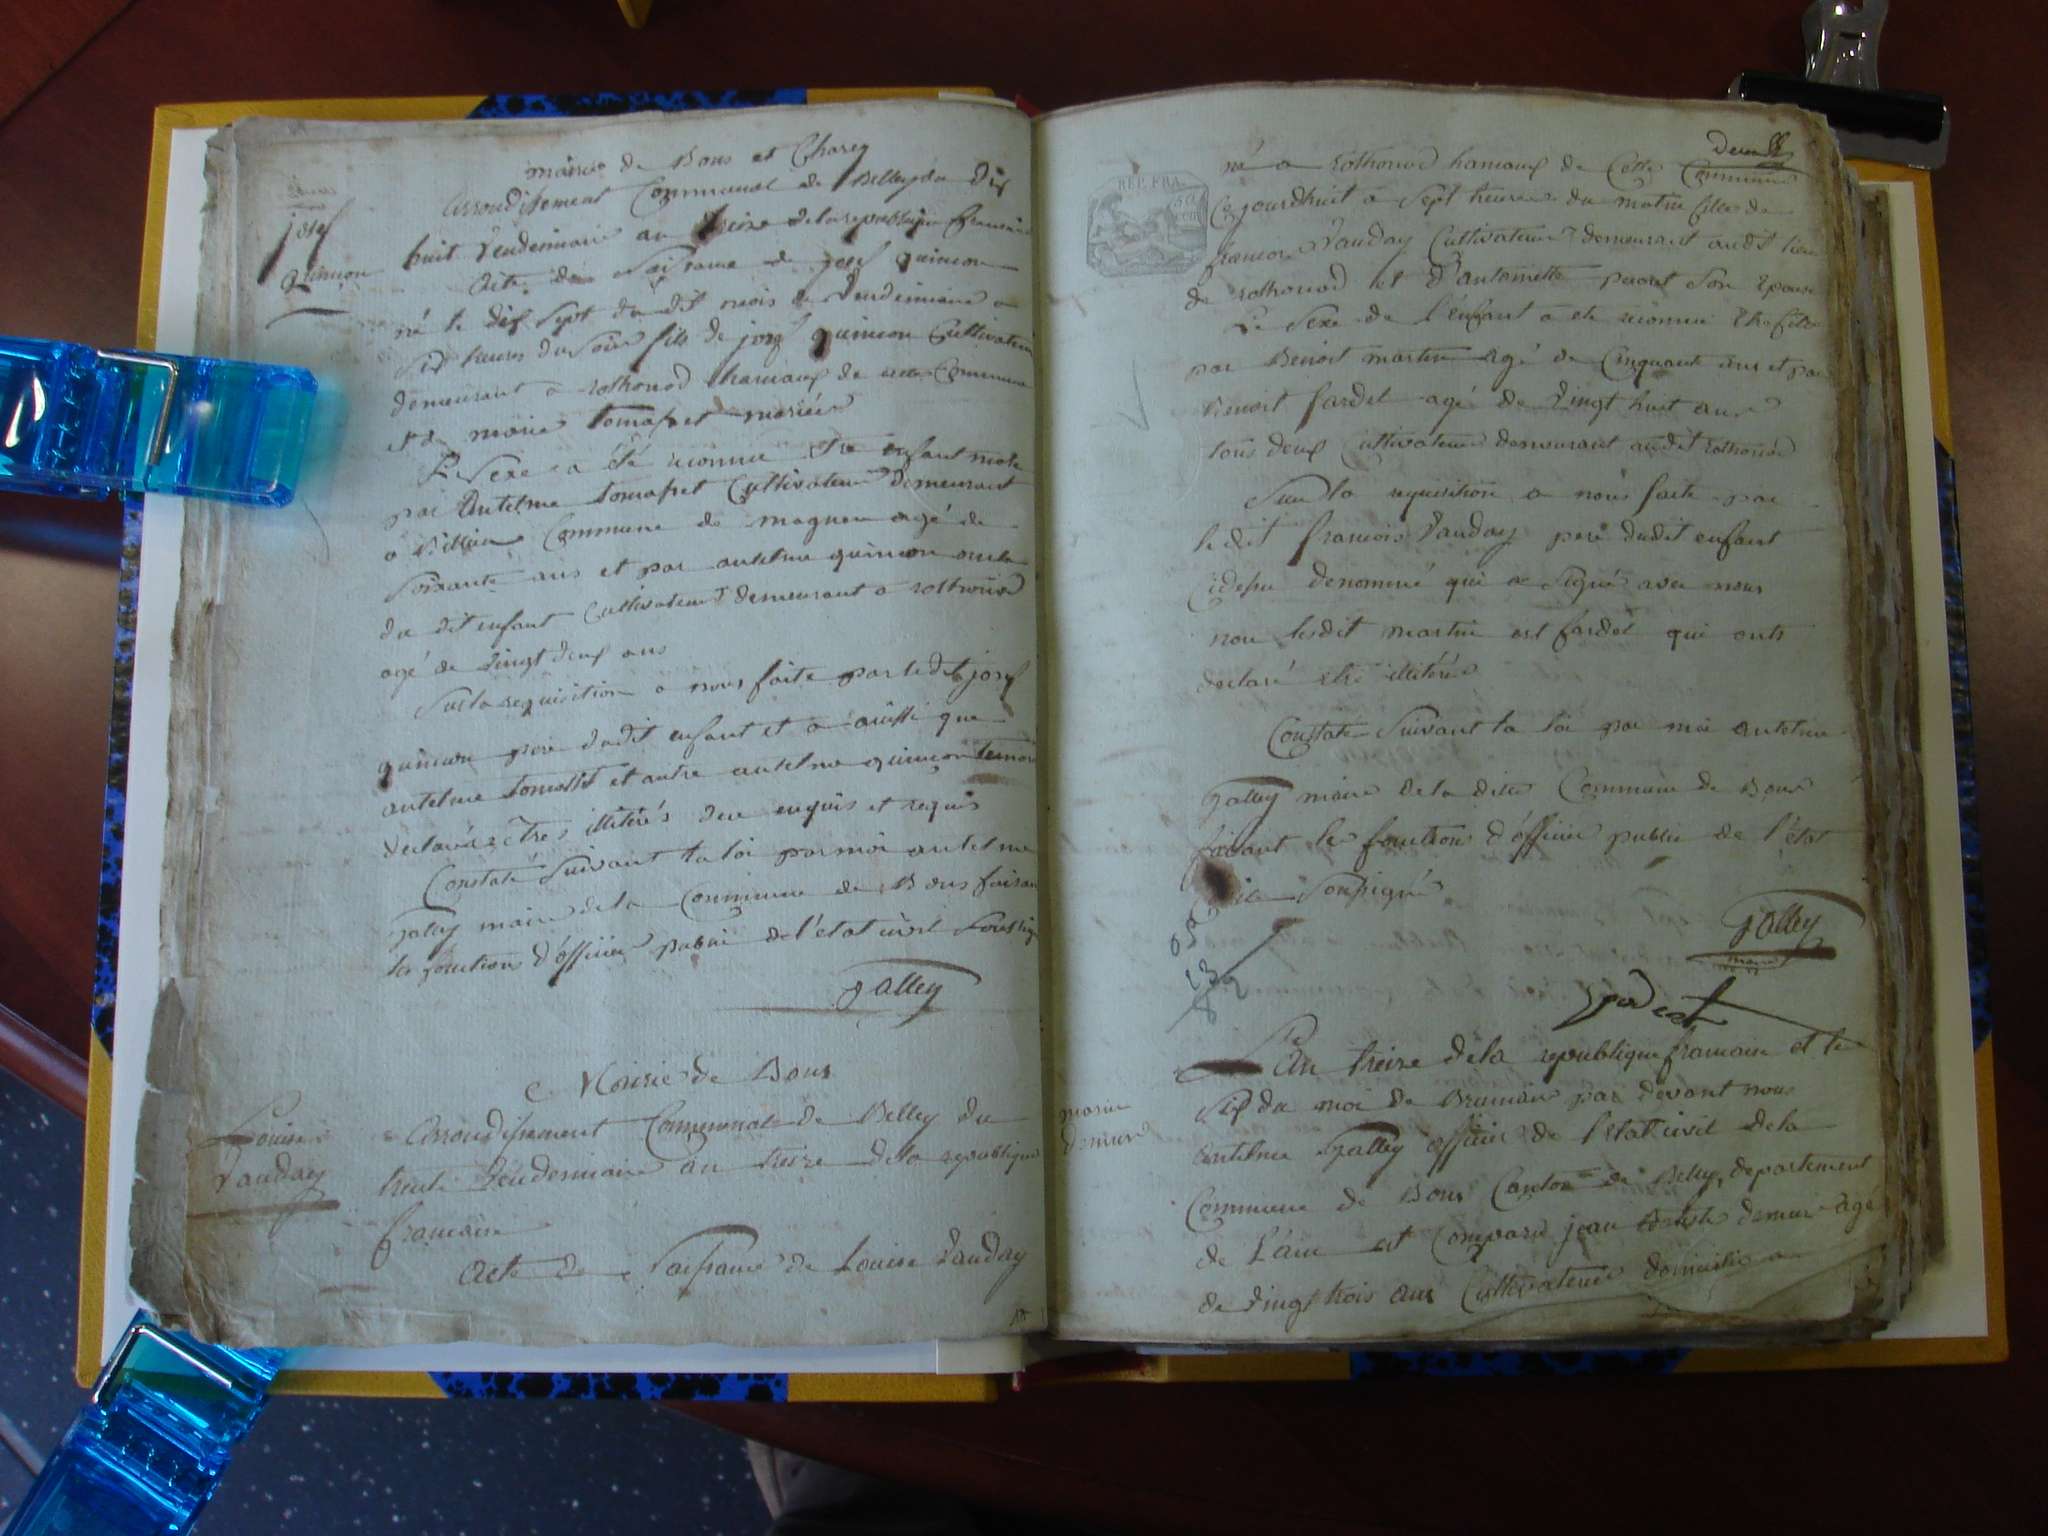 mairie de Bons et Charey
josef
quinçon
arrondissement Communal de Belley du dix
huit Vendemiaire an treize de la republique francaise
Acte de Naissance de josef quincon
né le dix Sept du dit mois de Vendemiaire a
Six heures du Soir fils de josef quincon Cultivateur
demeurant a rothonod hamaux de cette Commune
et de marie tomasset mariés
Le Sexe a été reconnu etre enfant male
par Antelme tomasset Cultivateur demeurant
a Billieu Commune de magneu agé de
Soixante ans et par antelme quincon oncle
du dit enfant Cultivateur demeurant a rothonod
agé de vingt deux ans
Sur la requisition a nous faite par le dit josef
quincon pere dudit enfant et a aussi que
antelme tomasset et autre antelme quincon temoin
declarés êtres illiterés deu enquis et requis
Constaté Suivant la loi par moi antelme
Jalley maire de la Commune de Bons faisant
les fonctions d'officier public de l'état civil Soussigné
Jalley
Mairie de Bons
Louise
Vauday
Arrondissement Communal de Belley du
trente Vendemiaire an treize de la republique
francaise
Acte de Naissance de Louise Vauday
REP. FRA.
50
cen
né a rothonod hamaux de Cette Commune
Ce jourdhuit a Sept heures du matin fille de
francois Vauday Cultivateur demeurant audit lieu
de rothonod et d'antoinette peront Son Epouse
Le Sexe de l'enfant a ete reconnu Etre fille
par Benoit martin agé de Cinquante ans et par
Benoit fardel agé de Vingt huit ans
tous deux Cultivateur demeurant audit rothonod
Sur la requisition a nous faite par
le dit francois Vauday pere dudit enfant
Cidessu denommé qui a Signé avec nous
non lesdit martin est fardel qui onts
declaré etre illiteré
Constate Suivant la loi par moi antelme
Jalley maire de la dite Commune de Bons
faisant les fonctions d'officier public de l'état
Civile Soussigné
Jalley
maire
marie
demeur
L'an treize de la republique francaise et le
Six du moi de Brumaire par devant nous
Antelme Jalley officier de l'etat civil de la
Commune de Bons Canton de Belley, departement
de L'ain est Comparu jean Batiste demeur agé
de Vingt trois ans Cultivateur domicilié a